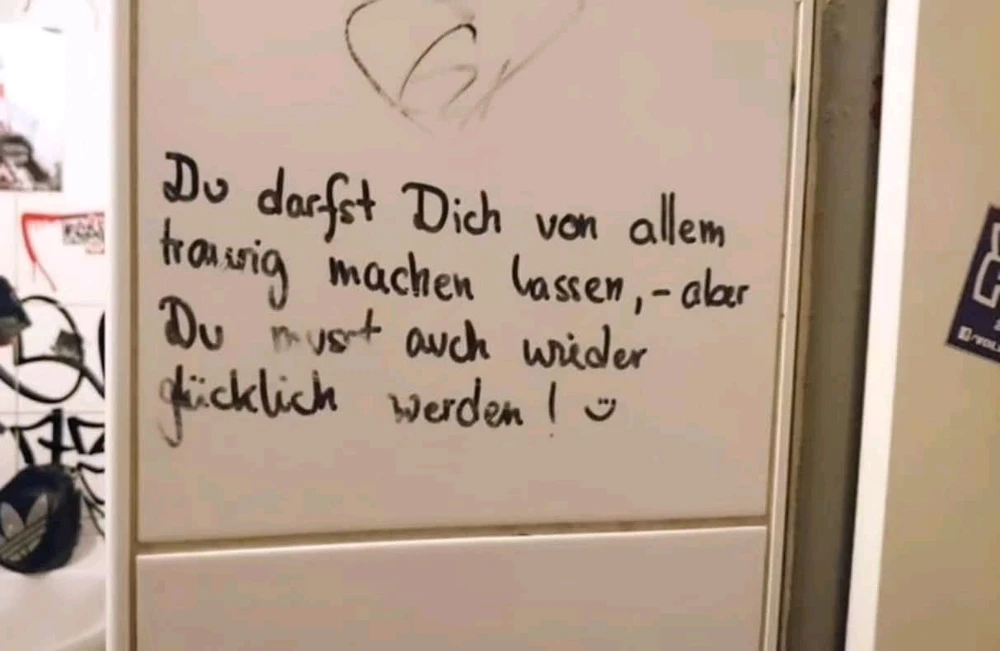 Du darfst Dich von allem
traurig machen lassen,- aber
Du musst auch wieder
glücklich werden! :)